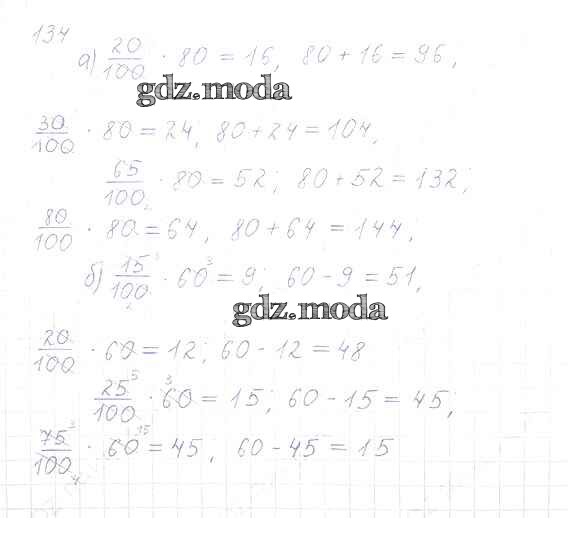 134
а) 20/100 · 80 = 16, 80 + 16 = 96,
gdz.moda
30/100 · 80 = 24, 80 + 24 = 104,
65/100 · 80 = 52; 80 + 52 = 132;
80/100 · 80 = 64, 80 + 64 = 144,
б) 15/100 · 60 = 9; 60 - 9 = 51,
gdz.moda
20/100 · 60 = 12; 60 - 12 = 48
25/100 · 60 = 15; 60 - 15 = 45;
75/100 · 60 = 45, 60 - 45 = 15